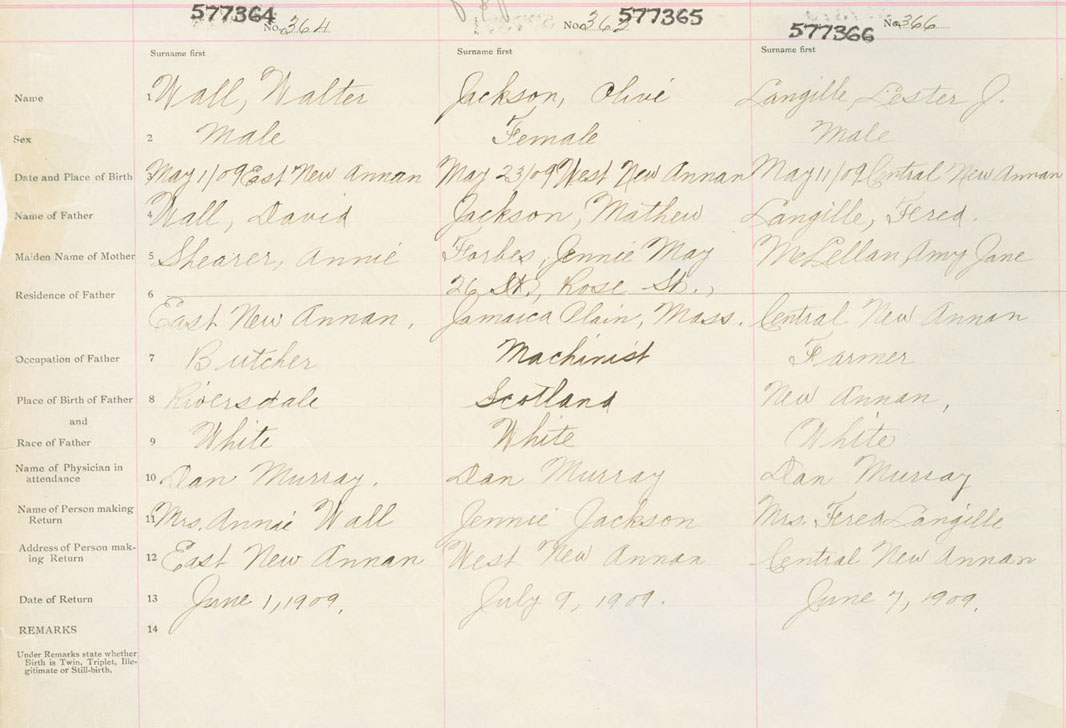 577364 577365 577366
No. 364 No. 365 No. 366
Surname first Surname first Surname first
Name 1 Wall, Walter Jackson, Olive Langille, Lester J.
Sex 2 Male Female Male
Date and Place of Birth 3 May 1/09 East New Annan May 23/09 West New Annan May 11/09 Central New Annan
Name of Father 4 Wall, David Jackson, Mathew Langille, Fered.
Maiden Name of Mother 5 Shearer, Annie Forbes, Jennie May McLellan, Amy Jane
Residence of Father 6 26 St., Rose St.,
East New Annan, Jamaica Plain, Mass. Central New Annan
Occupation of Father 7 Butcher Machinist Farmer
Place of Birth of Father 8 Riversdale Scotland New Annan,
and
Race of Father 9 White White White
Name of Physician in
attendance 10 Dan Murray. Dan Murray Dan Murray
Name of Person making
Return 11 Mrs. Annie Wall Jennie Jackson Mrs. Fered Langille
Address of Person mak-
ing Return 12 East New Annan West New Annan Central New Annan
Date of Return 13 June 1, 1909. July 9, 1909. June 7, 1909.
REMARKS 14
Under Remarks state whether
Birth is Twin, Triplet, Ille-
gitimate or Still-birth.